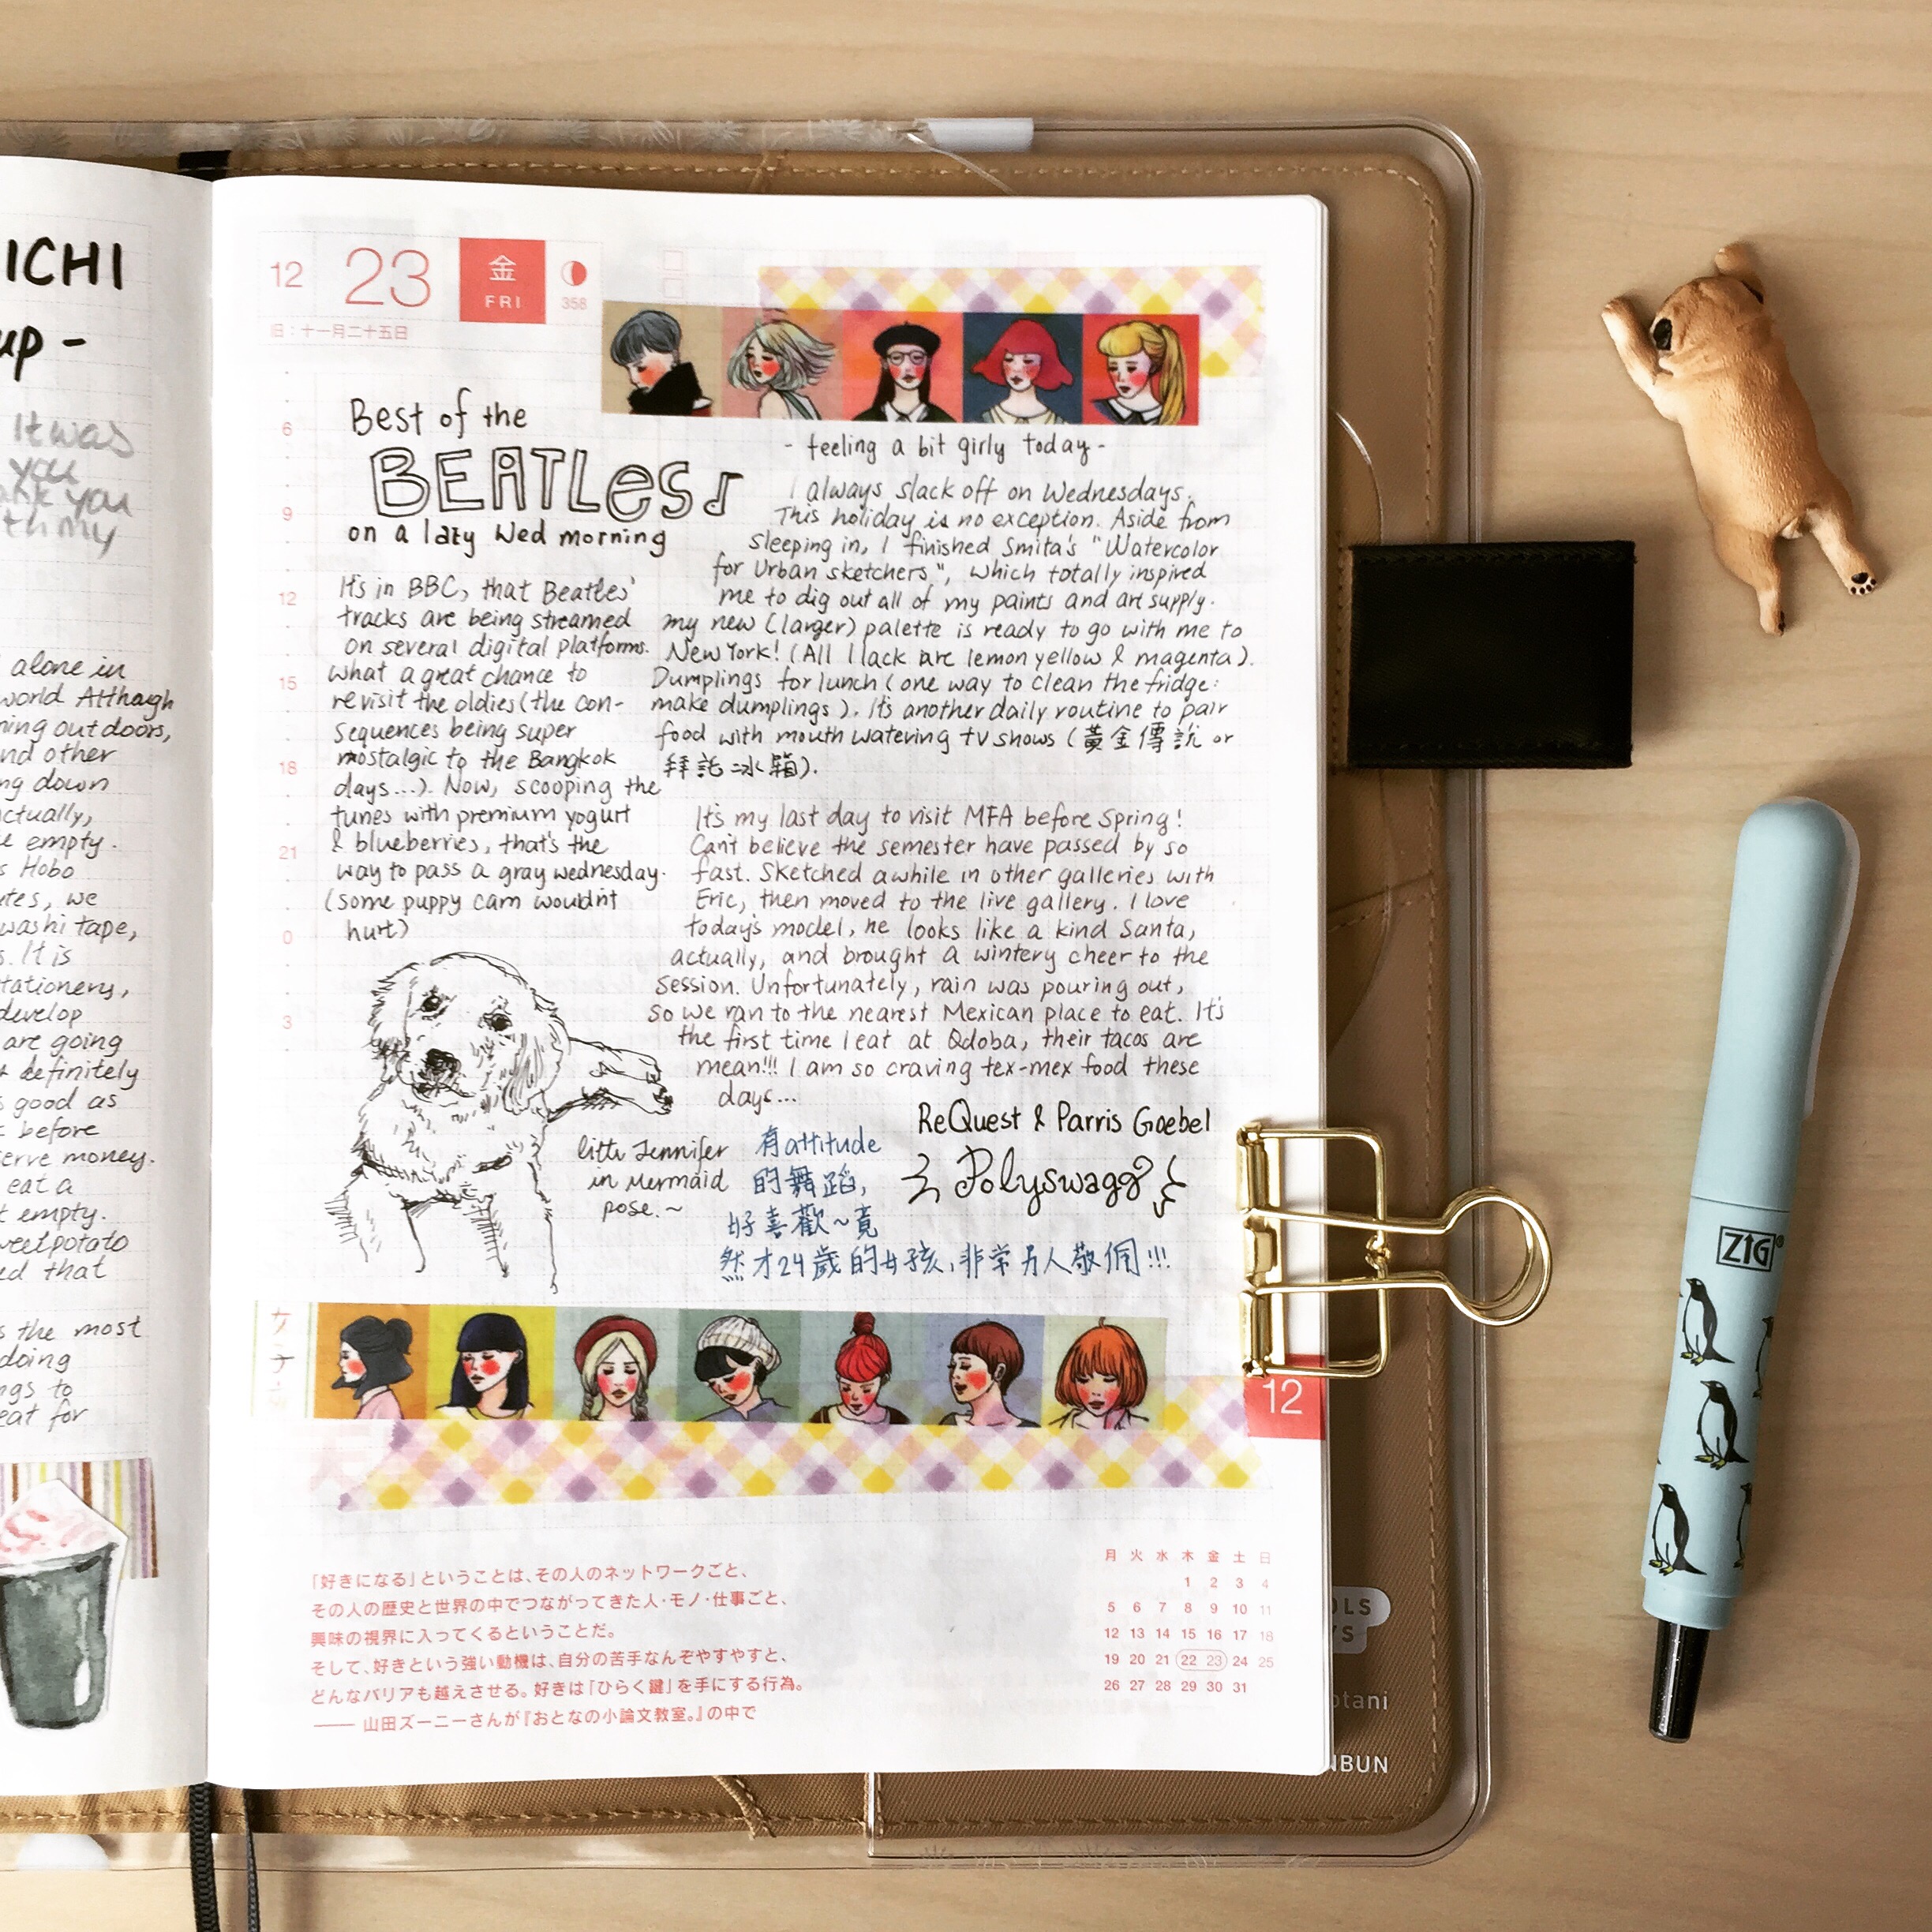 ICHI
up -
It was
you
thank you
with my
alone in
world Although
ning outdoors,
nd other
ng down
ctually,
e empty.
s Hobo
utes, we
washi tape,
s. It is
tationery,
develop
are going
definitely
s good as
before
erve money.
eat a
t empty.
weetpotato
ed that
s the most
doing
ngs to
eat for
12 23 金 FRI 358
旧：十一月二十五日
Best of the
BEATLes♪
on a lazy Wed morning
It's in BBC, that Beatles'
tracks are being streamed
on several digital platforms.
What a great chance to
revisit the oldies (the con-
sequences being super
nostalgic to the Bangkok
days...). Now, scooping the
tunes with premium yogurt
& blueberries, that's the
way to pass a gray wednesday.
(some puppy cam wouldn't
hurt)
6
9
12
15
18
21
0
3
- feeling a bit girly today -
I always slack off on Wednesdays.
This holiday is no exception. Aside from
sleeping in, I finished Smita's "Watercolor
for Urban sketchers", which totally inspired
me to dig out all of my paints and art supply.
my new (larger) palette is ready to go with me to
New York! (All I lack are lemon yellow & magenta).
Dumplings for lunch (one way to clean the fridge:
make dumplings). It's another daily routine to pair
food with mouth watering TV shows (黃金傳說 or
拜託冰箱).
It's my last day to visit MFA before Spring!
Can't believe the semester have passed by so
fast. Sketched awhile in other galleries with
Eric, then moved to the live gallery. I love
today's model, he looks like a kind Santa,
actually, and brought a wintery cheer to the
session. Unfortunately, rain was pouring out,
so we ran to the nearest Mexican place to eat. It's
the first time I eat at Qdoba, their tacos are
mean!!! I am so craving tex-mex food these
days...
little Jennifer
in Mermaid
pose. ~
有attitude
的舞蹈,
好喜歡~竟
然才24歲的女孩,非常另人敬佩!!!
ReQuest & Parris Goebel
Polyswagg
12
「好きになる」ということは、その人のネットワークごと、
その人の歴史と世界の中でつながってきた人・モノ・仕事ごと、
興味の視界に入ってくるということだ。
そして、好きという強い動機は、自分の苦手なんぞやすやすと、
どんなバリアも越えさせる。好きは「ひらく鍵」を手にする行為。
—— 山田ズーニーさんが『おとなの小論文教室。』の中で
月 火 水 木 金 土 日
1 2 3 4
5 6 7 8 9 10 11
12 13 14 15 16 17 18
19 20 21 22 23 24 25
26 27 28 29 30 31
OLS
YS
otani
NBUN
ZIG®